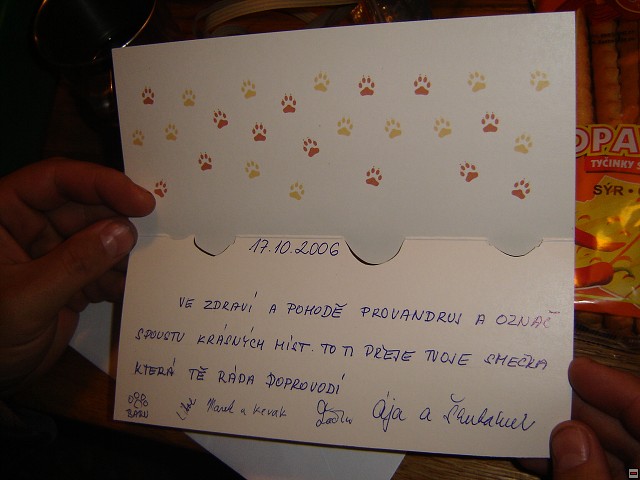 17.10.2006
VE ZDRAVÍ A POHODĚ PROVANDRUJ A OZNAČ
SPOUSTU KRÁSNÝCH MÍST. TO TI PŘEJE TVOJE SMEČKA
KTERÁ TĚ RÁDA DOPROVODÍ
BARU
Marek a Kevak
Ája a
OPA
TYČINKY S
SÝR